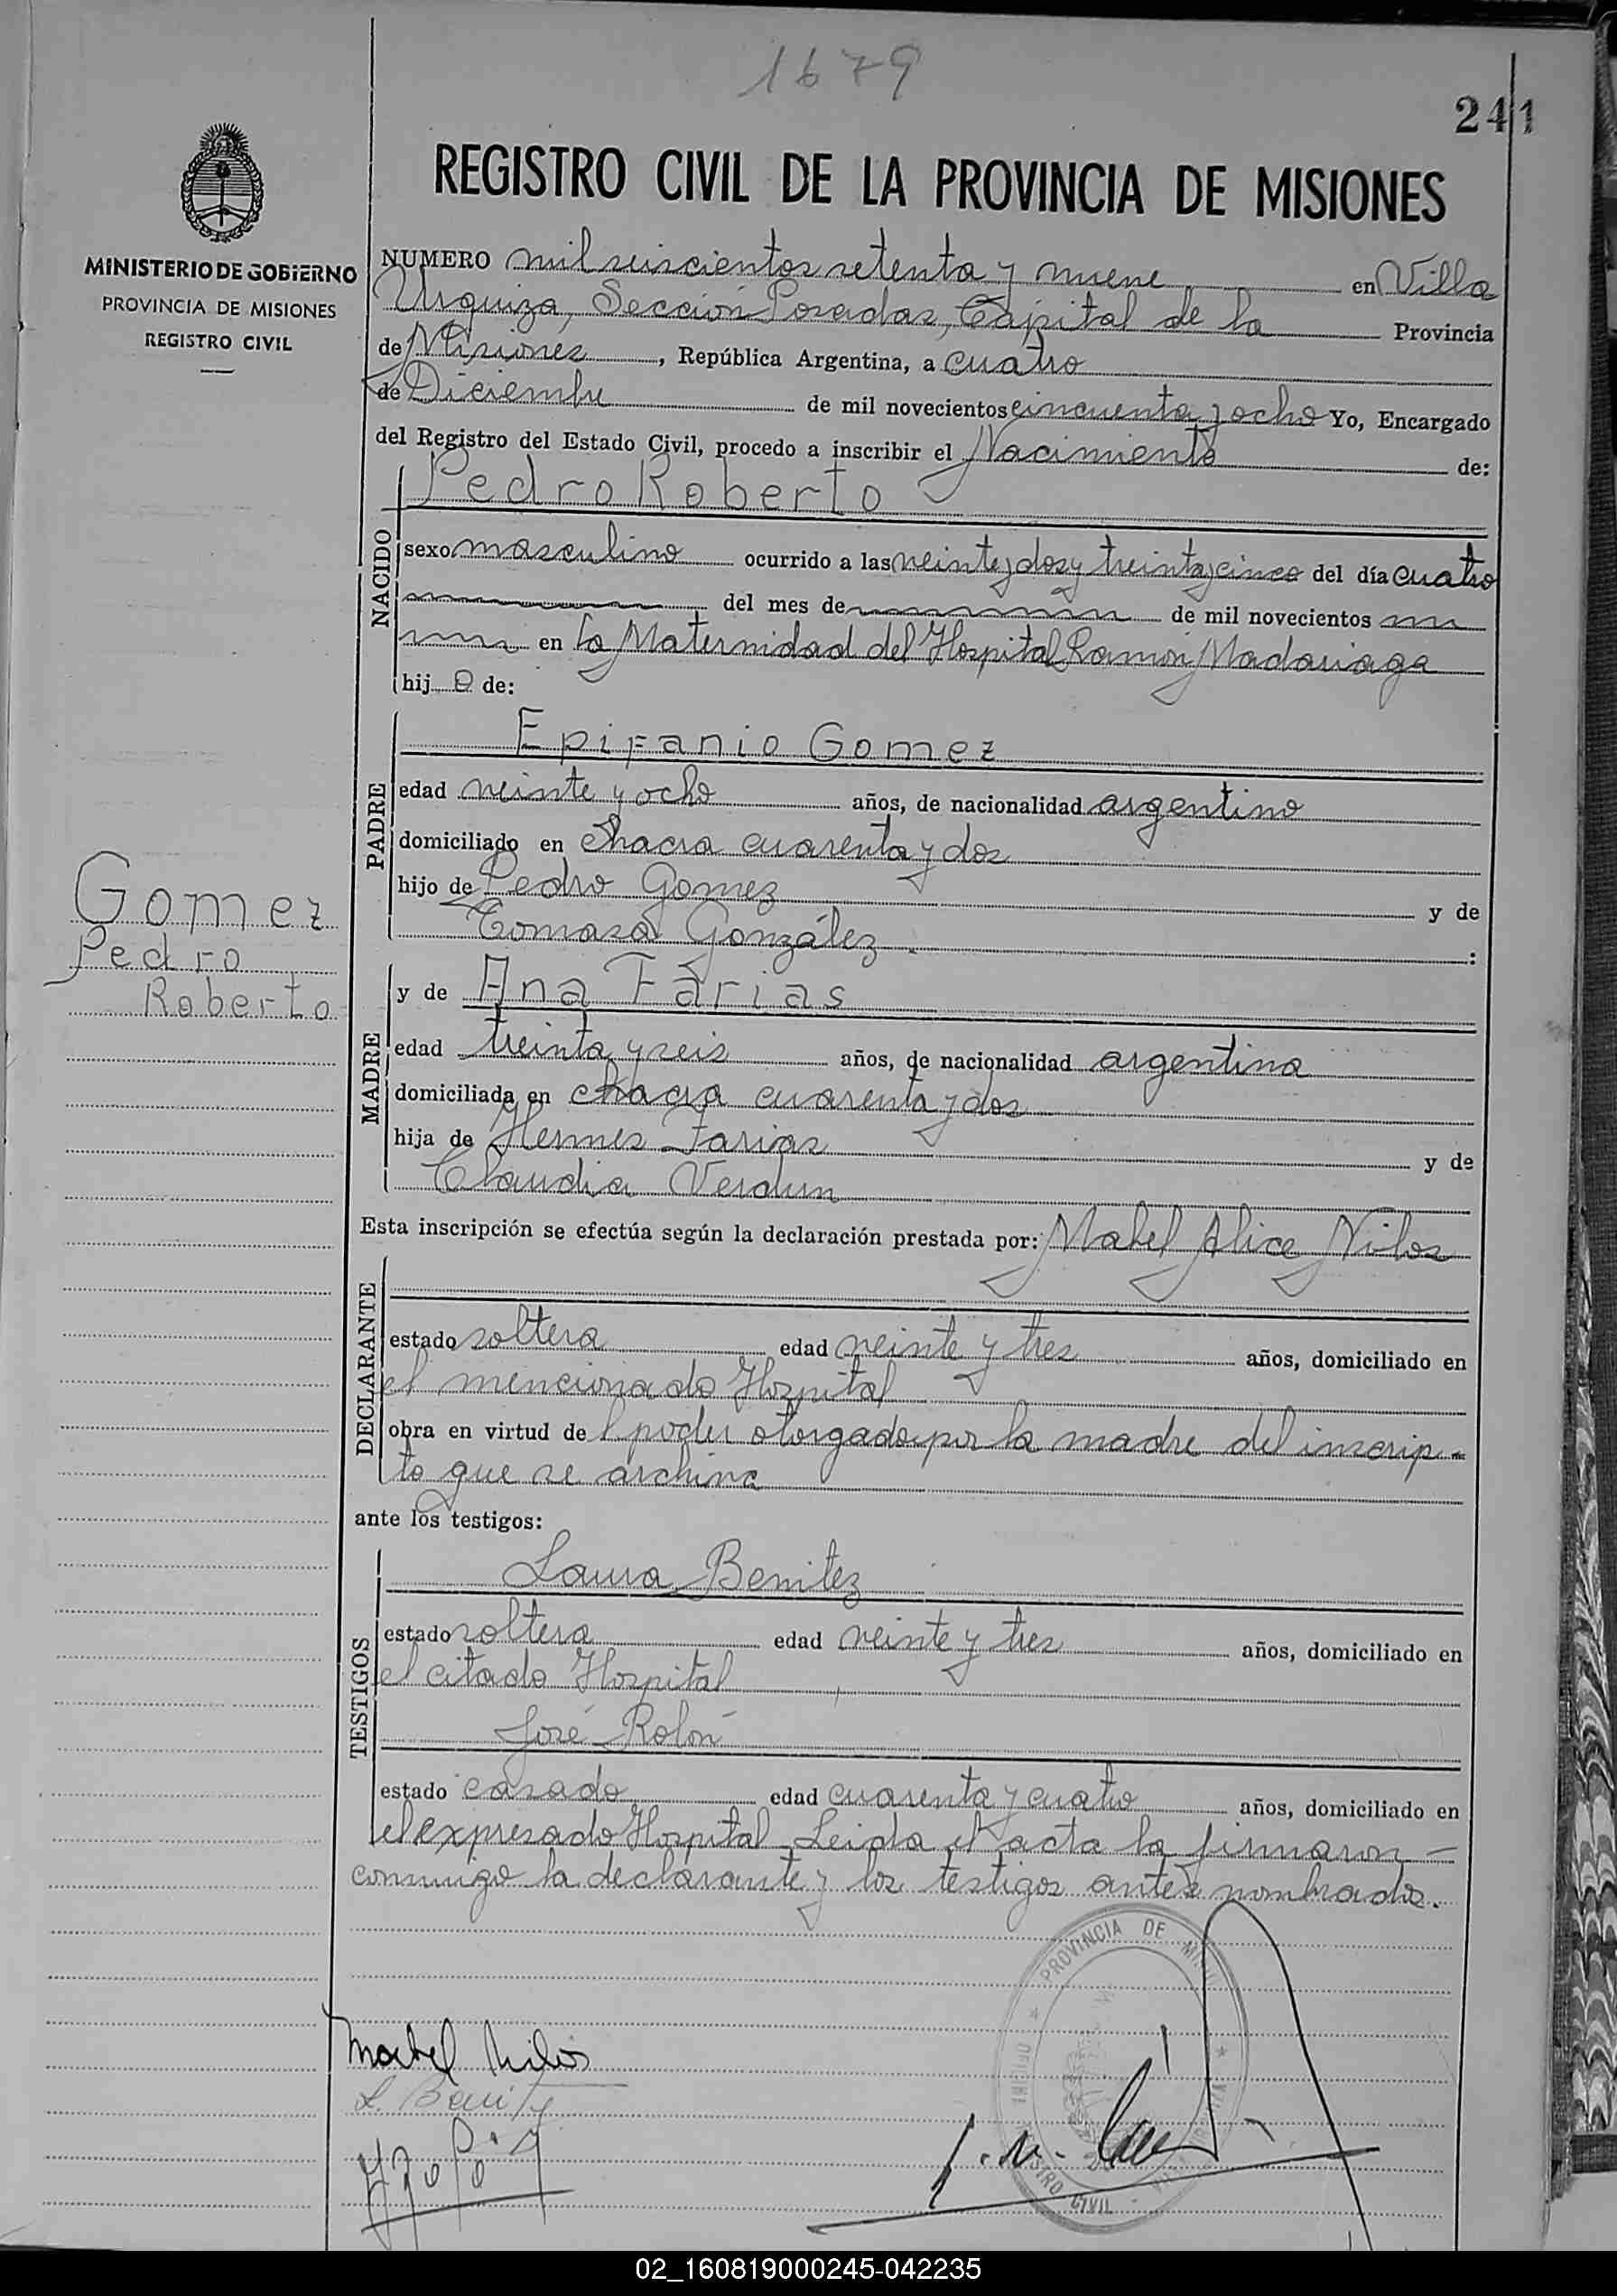 1679
241
REGISTRO CIVIL DE LA PROVINCIA DE MISIONES
MINISTERIO DE GOBIERNO
PROVINCIA DE MISIONES
REGISTRO CIVIL
NUMERO mil seiscientos setenta y nueve en Villa
Urquiza, Sección Posadas, Capital de la Provincia
de Misiones, República Argentina, a cuatro
de Diciembre de mil novecientos cincuenta y ocho Yo, Encargado
del Registro del Estado Civil, procedo a inscribir el Nacimiento de:
NACIDO
Pedro Roberto
sexo masculino ocurrido a las veinte y dos y treinta y cinco del día cuatro
del mes de de mil novecientos
en la Maternidad del Hospital Ramón Madariaga
hijo de:
PADRE
Epifanio Gomez
edad veinte y ocho años, de nacionalidad argentino
domiciliado en chacra cuarenta y dos
hijo de Pedro Gomez y de
Tomasa González :
Gomez
Pedro
Roberto
MADRE
y de Ana Farias
edad treinta y seis años, de nacionalidad argentina
domiciliada en chacra cuarenta y dos
hija de Hermes Farias y de
Claudia Verdun
Esta inscripción se efectúa según la declaración prestada por: Mabel Alice Nilos
DECLARANTE
estado soltera edad veinte y tres años, domiciliado en
el mencionado Hospital
obra en virtud de l poder otorgado por la madre del inscrip-
to que se archiva
ante los testigos:
TESTIGOS
Laura Benitez
estado soltera edad veinte y tres años, domiciliado en
el citado Hospital
José Rolón
estado casado edad cuarenta y cuatro años, domiciliado en
el expresado Hospital Leida el acta la firmaron
conmigo la declarante y los testigos antes nombrados.
PROVINCIA DE
CIVIL
Mabel Nilos
L. Benitz
02_160819000245-042235